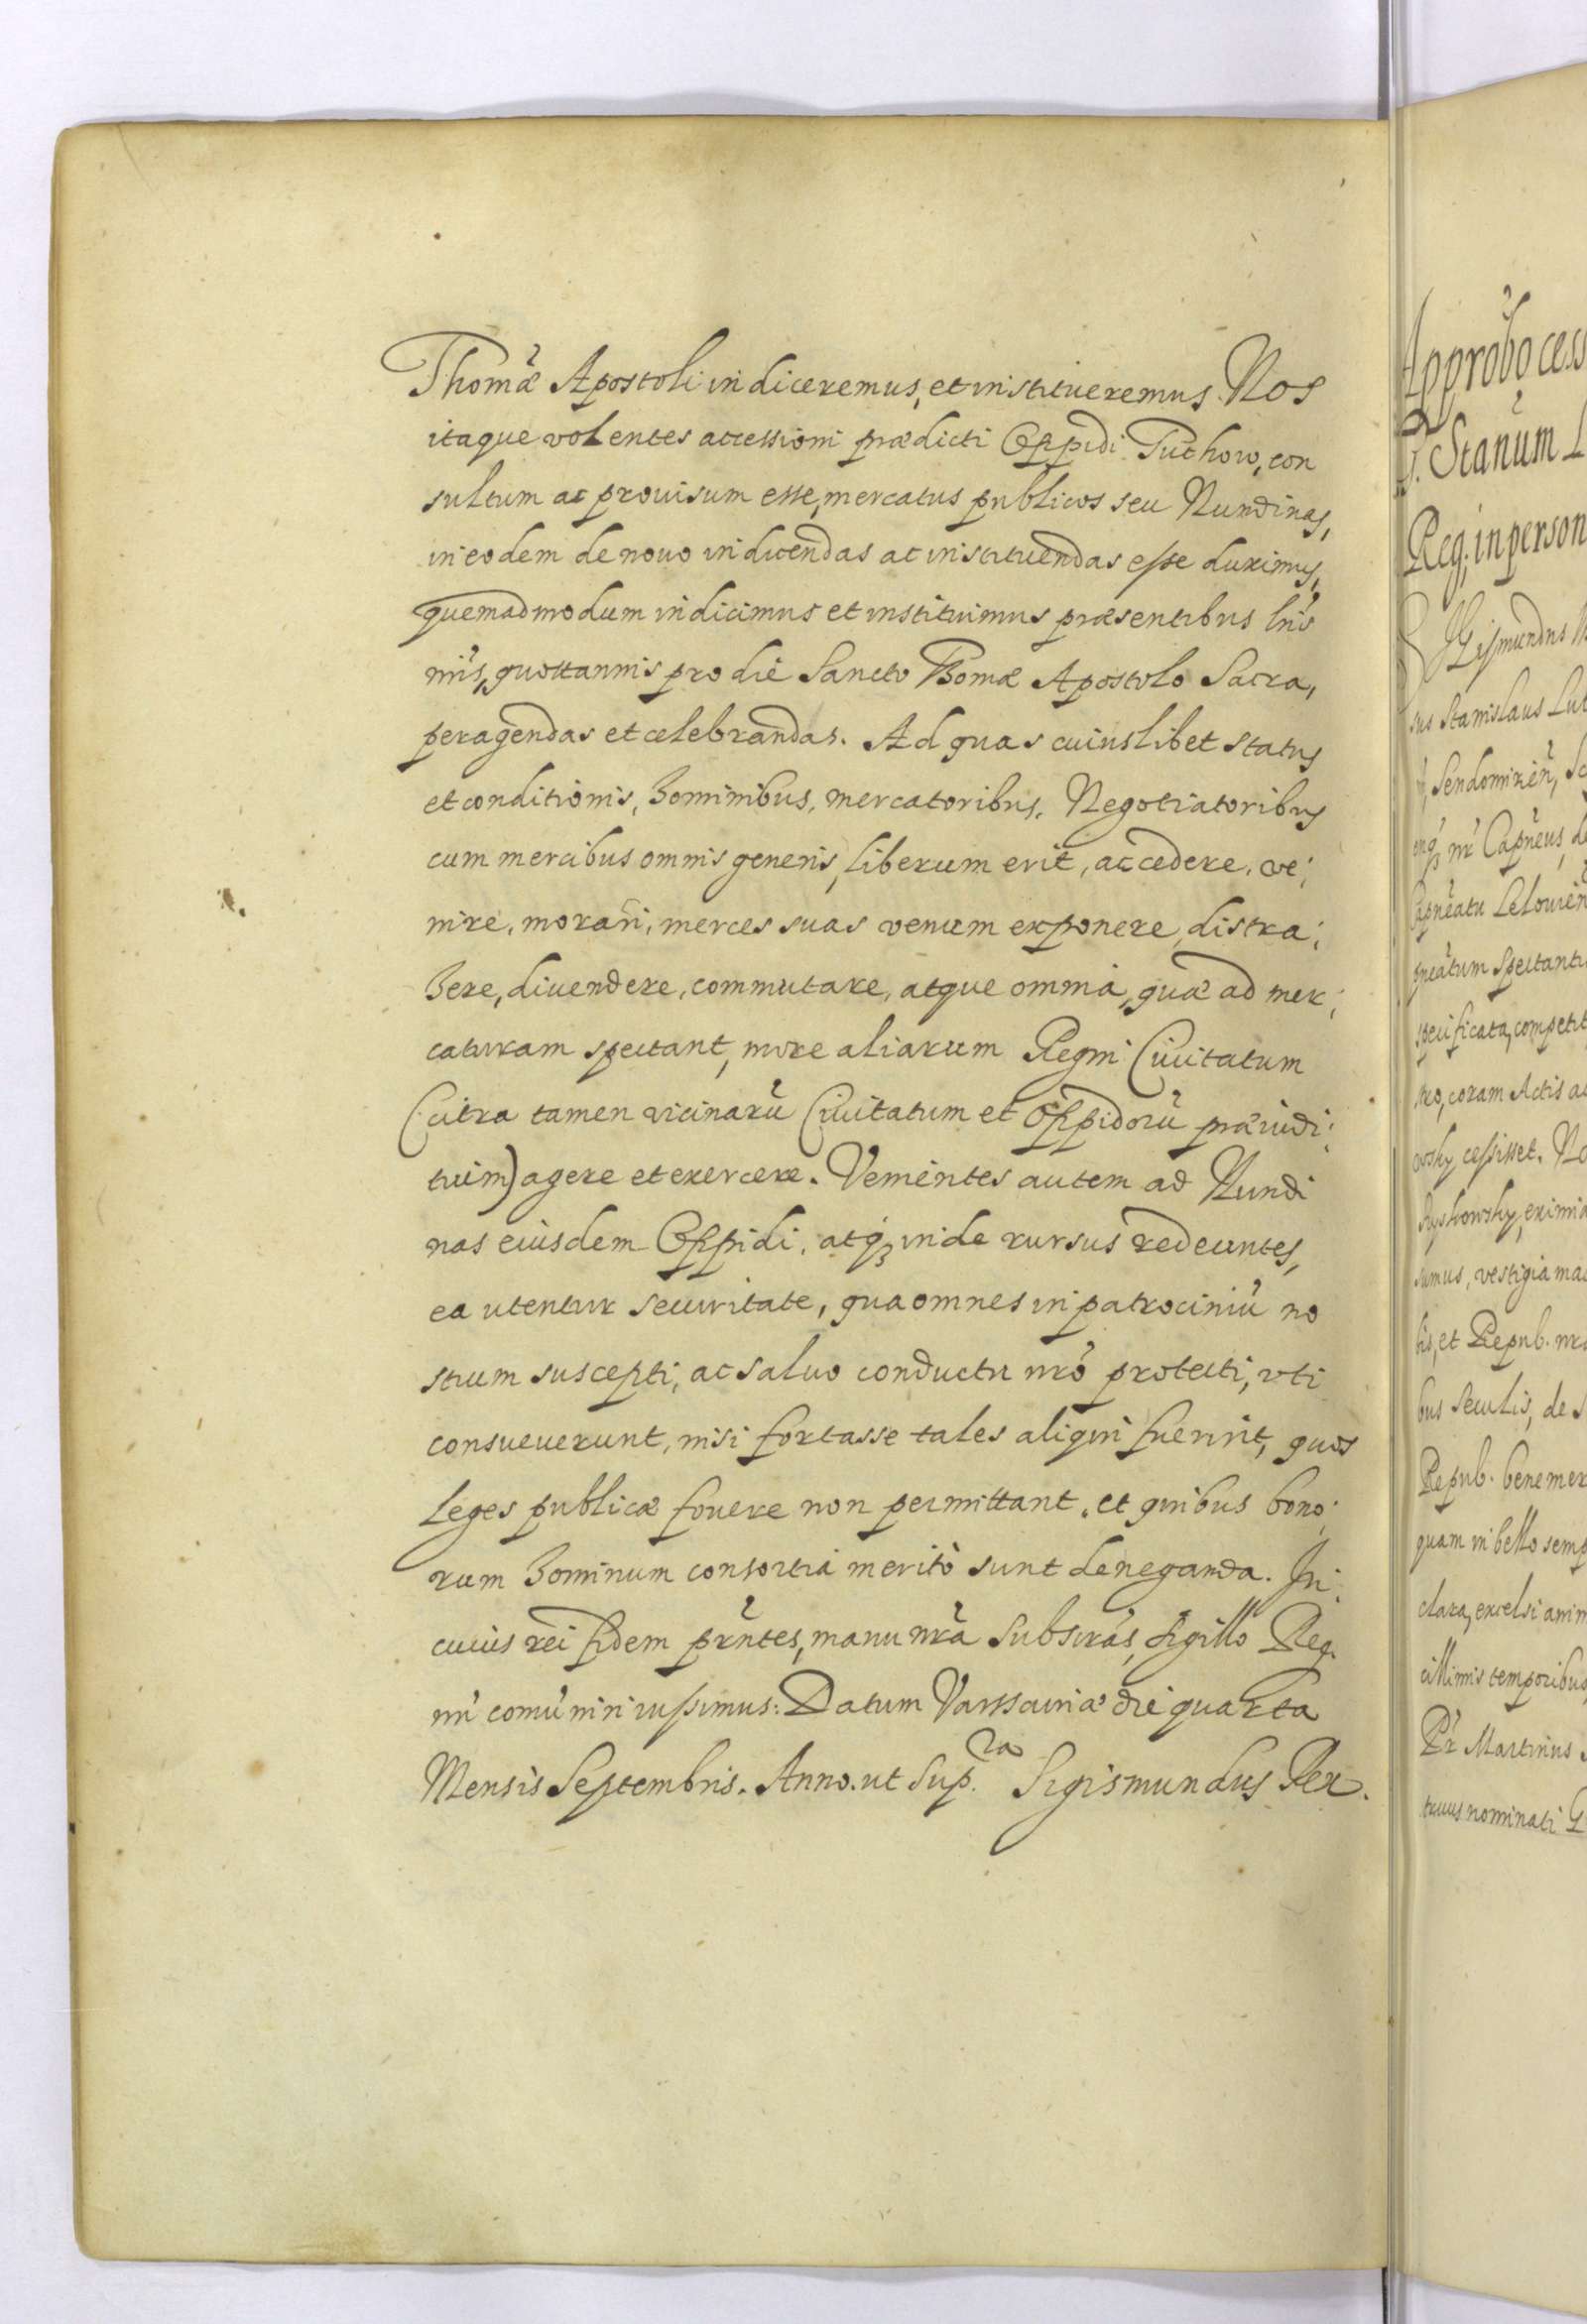 Thomæ Apostoli indiceremus, et institueremus. Nos
itaque volentes accessioni prædicti Oppidi Tuchow, con
sultum ac prouisum esse, mercatus publicos seu Nundinas,
in eodem de nouo indicendas ac instituendas esse duximus,
quemadmodum indicimus et instituimus præsentibus lris
nris, quottannis pro die Sancto Thomæ Apostolo Sacra,
peragendas et celebrandas. Ad quas cuiuslibet status
et conditionis, hominibus, mercatoribus, Negotiatoribus
cum mercibus omnis generis, liberum erit, accedere, ve:
nire, morari, merces suas venum exponere, distra:
here, diuendere, commutare, atque omnia, quæ ad mer:
caturam spectant, more aliarum Regni Ciuitatum
(citra tamen vicinarũ Ciuitatum et Oppidorũ præiudi:
tium) agere et exercere. Venientes autem ad Nundi
nas eiusdem Oppidi, atq; inde rursus redeuntes,
ea utentur securitate, qua omnes in patrociniũ no
strum suscepti, ac saluo conductu nrõ protecti, vti
consueuerunt, nisi fortasse tales aliqui fuerint, quos
Leges publicæ fouere non permittant, et quibus bono:
rum hominum consortia meritò sunt deneganda. In
cuius rei fidem prñtes, manu nrã subscras, sigillo Reg:
ni comũniri iussimus. Datum Varssauiæ die quarta
Mensis Septembris. Anno. ut sup.ra Sigismundus Rex.
Approbo cess
Stanũm L
Reg: in person
Sigismundus
sus Stanislaus Lut
Sendomiriẽn, Sc
enq; nr Capneus, de
Capneatu Lelouiẽn
pneãtum spectanti
specificata, competit
tro, coram Actis ac
owsky cessisset. No
Ryskowsky, eximia
sumus, vestigia mai
bis, et Repub. nra
bus seculis, de s
Repub. benemer
quam in bello semp
clara, excelsi anim
cillimis temporibus
Pr Martinus
truus nominati G